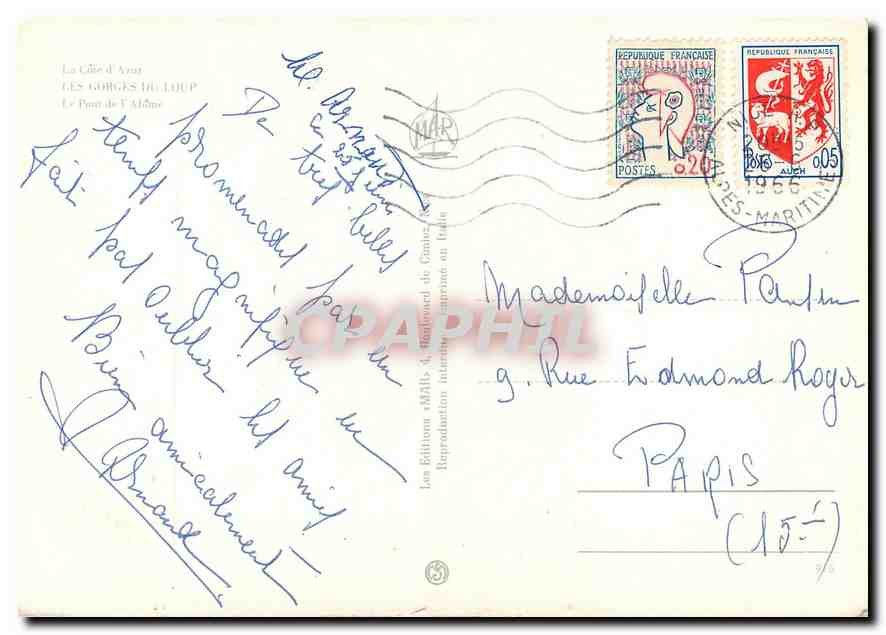 La Côte d'Azur
LES GORGES DU LOUP
Le Pont de l'Abîme
De très belles
promenades par un
temps magnifique ne
font pas oublier les amis
Bien amicalement
Arnaud
MAR
Les Editions «MAR» 4, Boulevard de Cimiez, Nice
Reproduction interdite Imprimé en Italie
CPAPHIL
REPUBLIQUE FRANÇAISE
POSTES 0.20
REPUBLIQUE FRANÇAISE
POSTES 0,05
AUCH
1966
ALPES-MARITIMES
Mademoiselle Pantin
9. Rue Edmond Roger
PARIS
(15è)